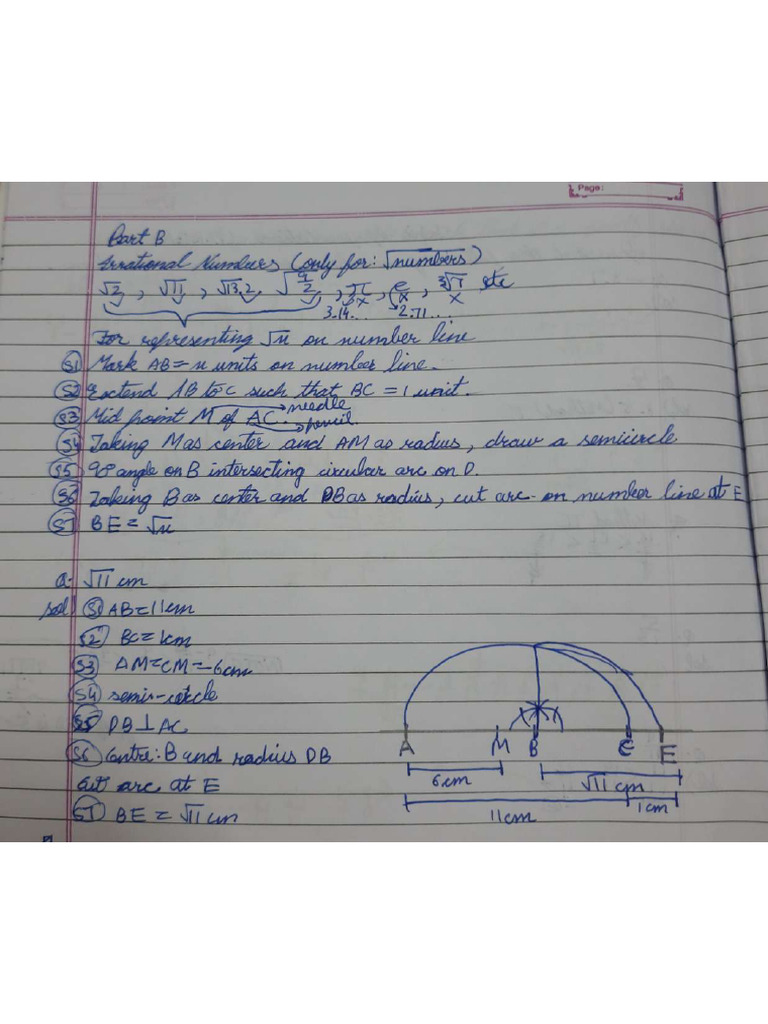 Page:
Part B
Irrational Numbers (only for: √numbers)
√2, √11, √13.2, √(9/2), π, e, ∛7 etc
3.14... 2.71...
For representing √n on number line
S1 Mark AB = n units on number line.
S2 Extend AB to C such that BC = 1 unit.
S3 Mid point M of AC. → needle
→ pencil
S4 Taking M as center and AM as radius, draw a semicircle
S5 90° angle on B intersecting circular arc on D.
S6 Taking B as center and DB as radius, cut arc on number line at E
S7 BE = √n
Q. √11 cm
Sol. S1 AB = 11cm
S2 BC = 1cm
S3 AM = CM = 6cm
S4 semi-circle
S5 DB ⊥ AC
S6 Centre: B and radius DB
cut arc at E
S7 BE = √11 cm
A M B C E
6cm √11 cm
11cm 1cm